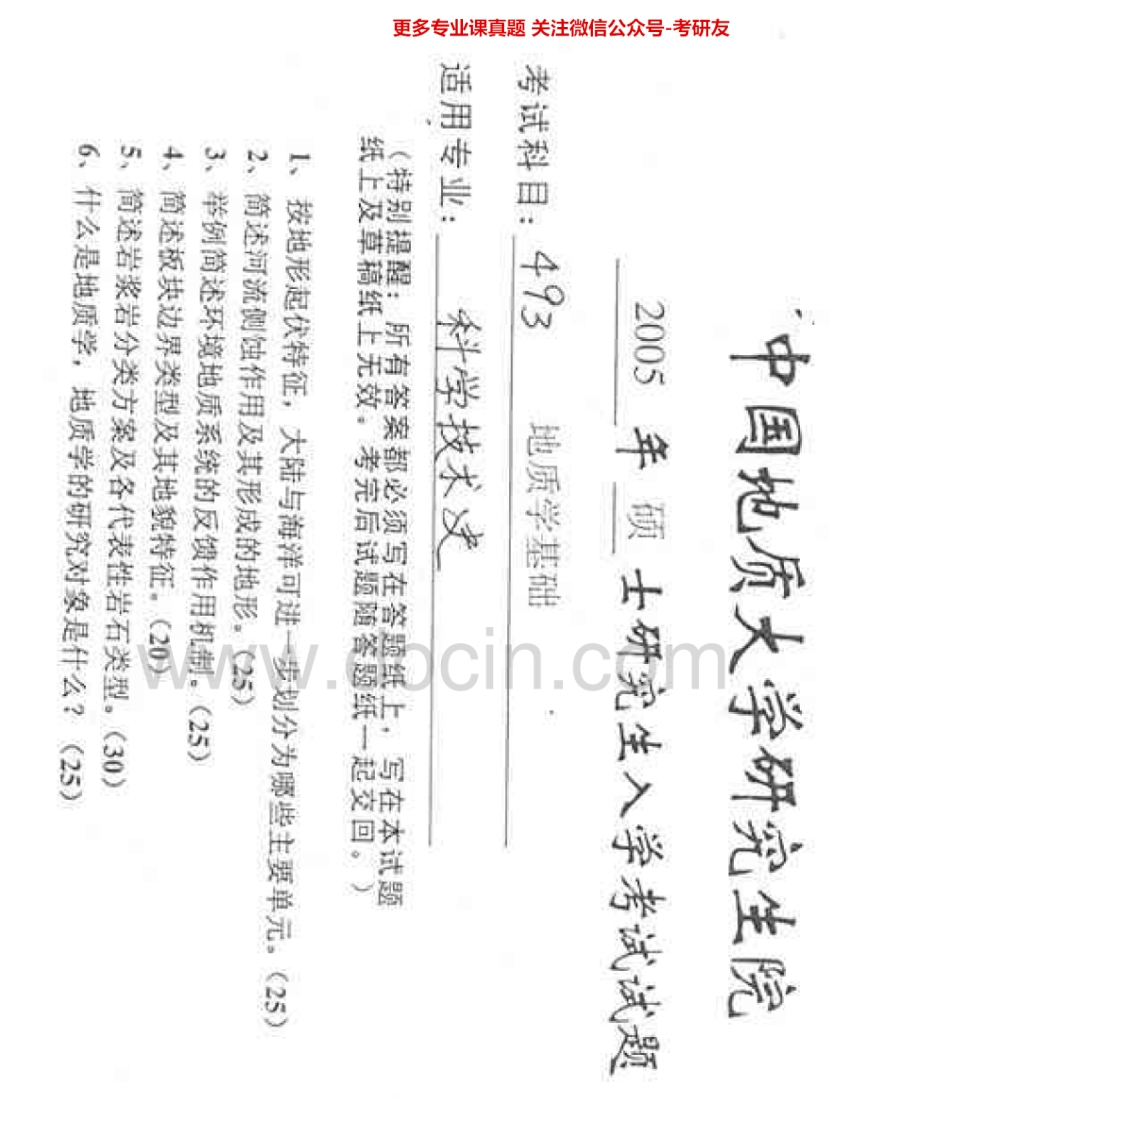 更多专业课真题 关注微信公众号-考研友
中国地质大学研究生院
2005 年 硕 士研究生入学考试试题
考试科目： 493 地质学基础
适用专业： 科学技术史
（特别提醒：所有答案都必须写在答题纸上，写在本试题
纸上及草稿纸上无效。考完后试题随答题纸一起交回。）
1、按地形起伏特征，大陆与海洋可进一步划分为哪些主要单元。（25）
2、简述河流侧蚀作用及其形成的地形。（25）
3、举例简述环境地质系统的反馈作用机制。（25）
4、简述板块边界类型及其地貌特征。（20）
5、简述岩浆岩分类方案及各代表性岩石类型。（30）
6、什么是地质学，地质学的研究对象是什么？（25）
www.cocin.com